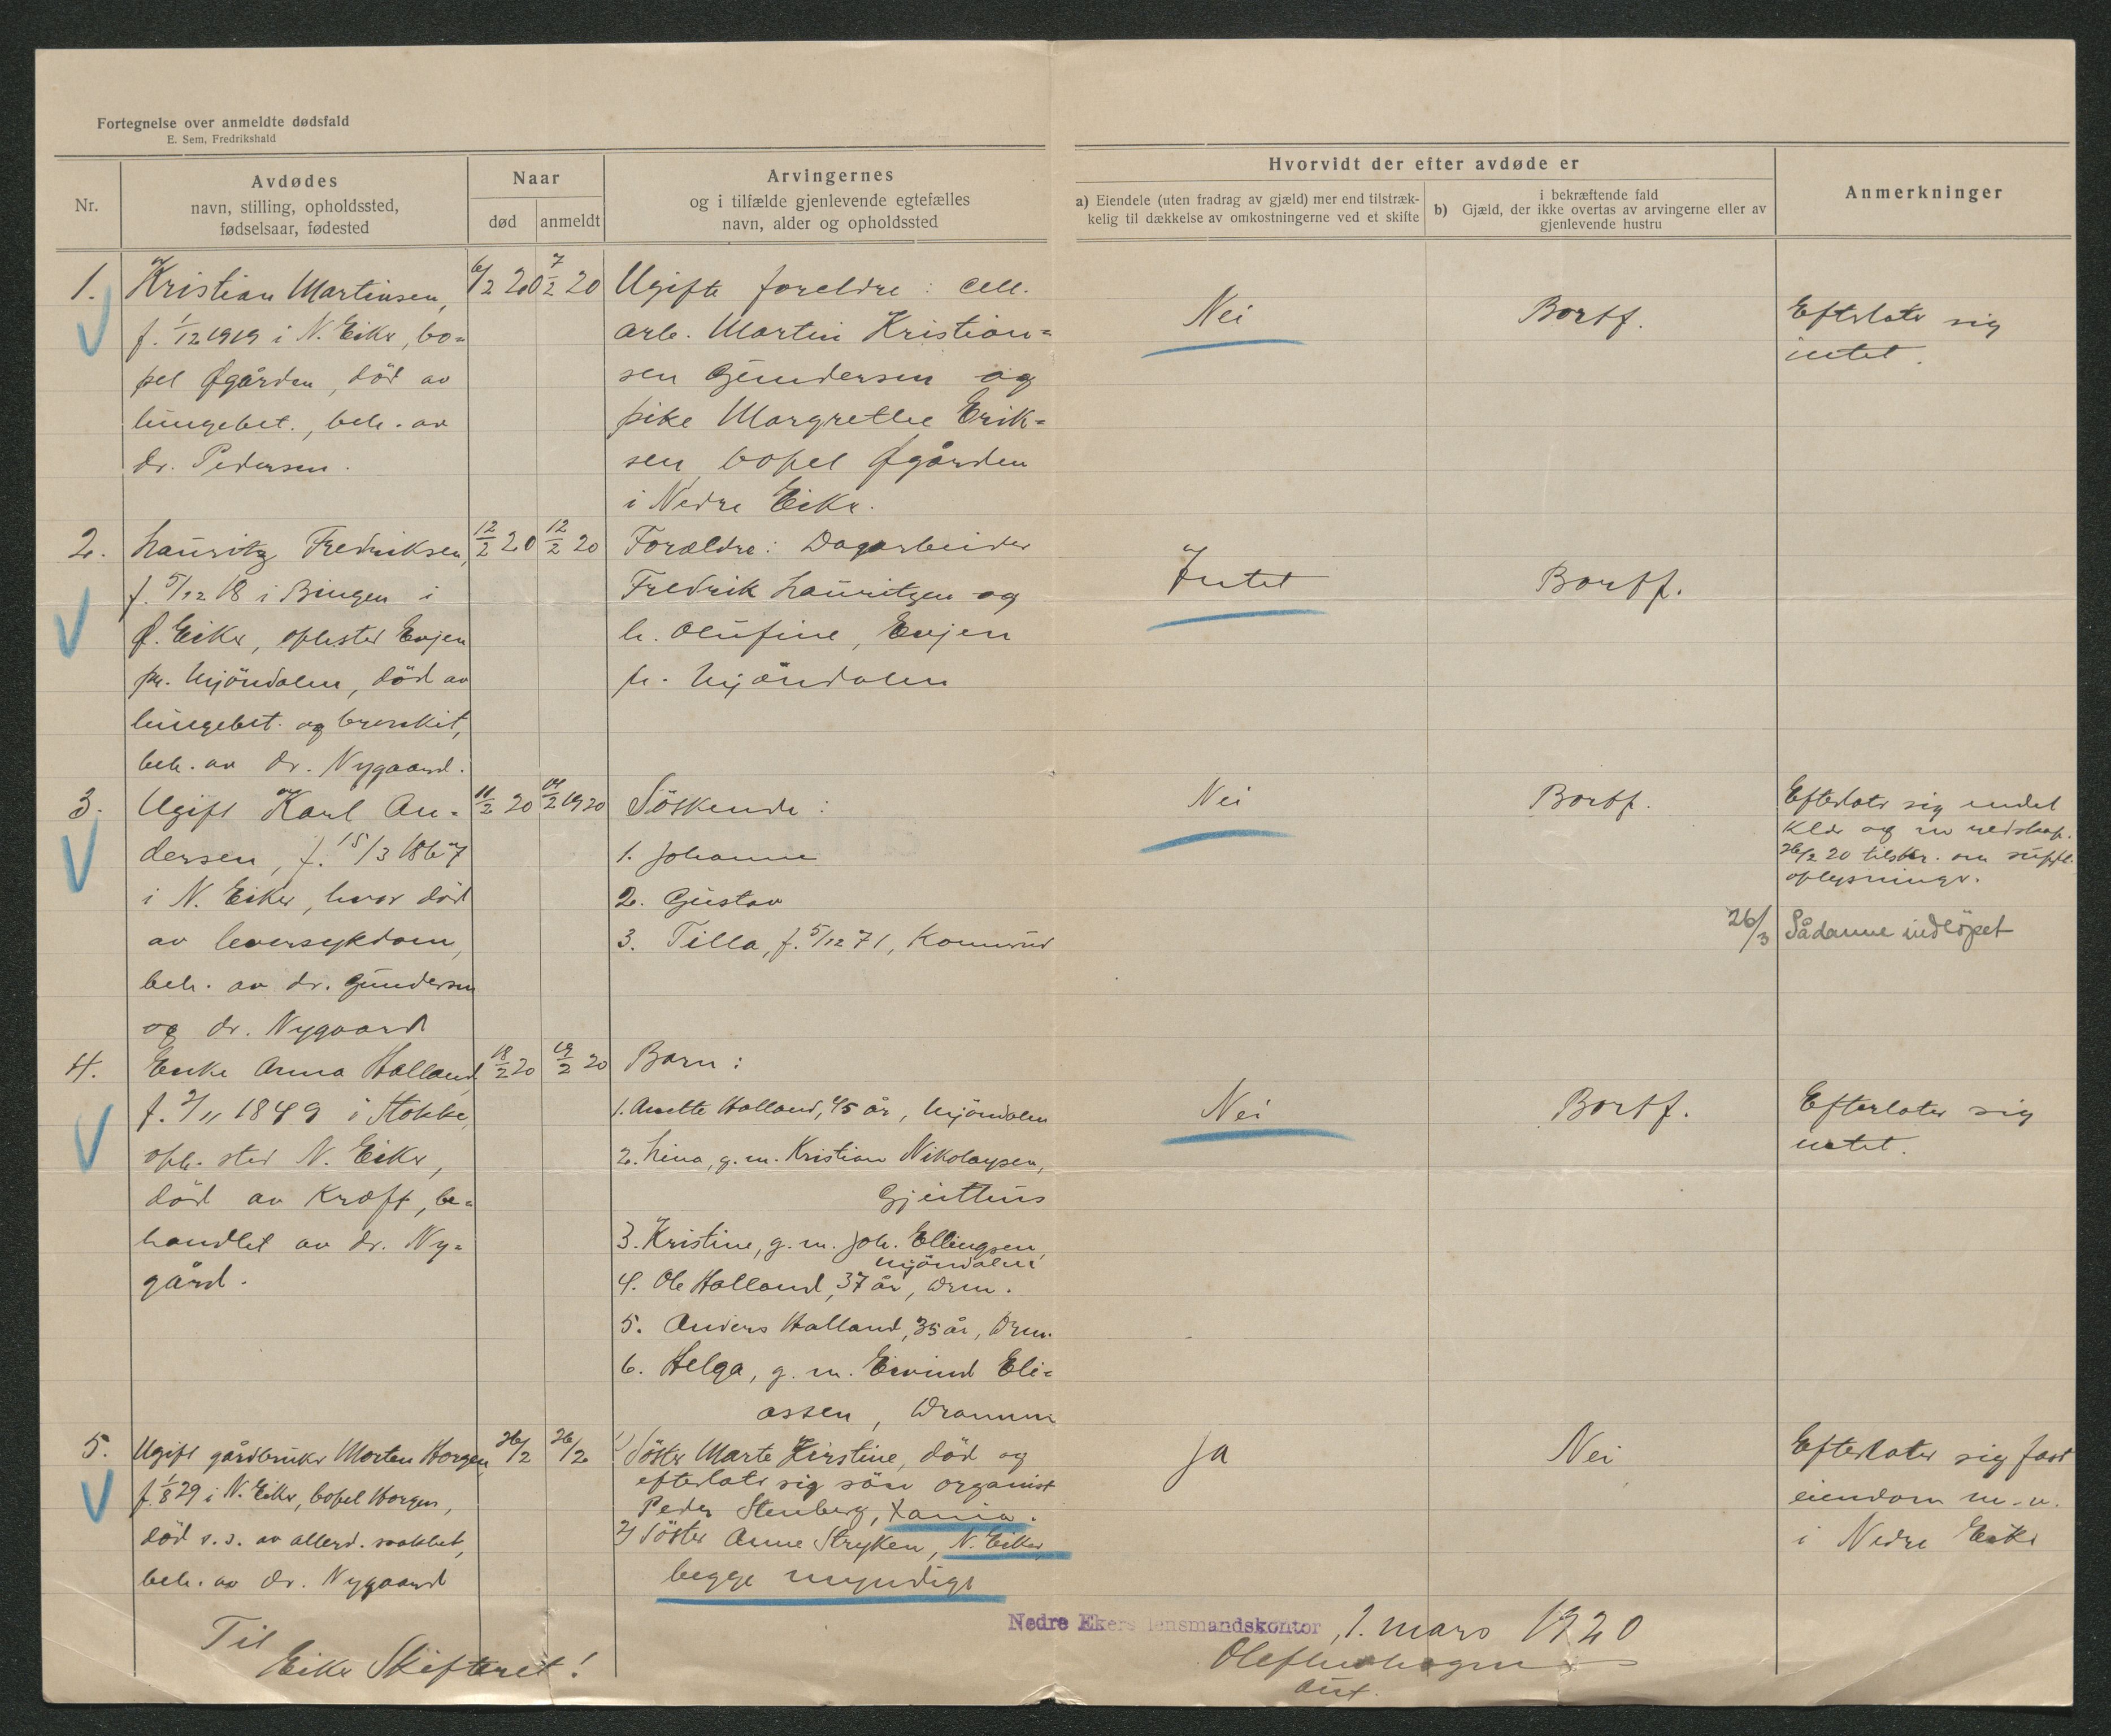 Fortegnelse over anmeldte dødsfald
E. Sem, Fredrikshald
Nr.
Avdødes
navn, stilling, opholdssted,
fødselsaar, fødested
Naar
død
anmeldt
Arvingernes
og i tilfælde gjenlevende egtefælles
navn, alder og opholdssted
Hvorvidt der efter avdøde er
a) Eiendele (uten fradrag av gjæld) mer end tilstræk-
kelig til dækkelse av omkostningerne ved et skifte
b) i bekræftende fald
Gjæld, der ikke overtas av arvingerne eller av
gjenlevende hustru
Anmerkninger
1.
Kristian Martinsen,
f. 1/12 1919 i N. Eiker, bo=
pel Øgården, död av
lungebet., beh. av
dr. Pedersen.
6/2 20
7/2 20
Ugifte foreldre: cell.
arb. Martin Kristian=
sen Gundersen og
pike Margrethe Erik=
sen, bopel Øgården
i Nedre Eiker.
Nei
Bortf.
Efterlater sig
intet.
2.
Lauritz Fredriksen,
f. 5/12 18 i Bingen i
Ø. Eiker, oph.sted Evjen
pr. Mjöndalen, död av
lungebet. og bronkit,
beh. av dr. Nygaard.
12/2 20
12/2 20
Forældre: Dagarbeider
Fredrik Lauritzen og
h. Olufine, Evjen
p. Mjöndalen
Intet
Bortf.
3.
Ugift Karl An-
dersen, f. 15/3 1867
i N. Eiker, hvor död
av leversykdom,
beh. av dr. Gundersen
og dr. Nygaard
11/2 20
14/2 1920
Söskende:
1. Johanne
2. Gustav
3. Tilla, f. 5/12 71, Komnud
Nei
Bortf.
Efterlater sig endel
klær og en redskap.
26/2 20 tilskr. om suppl.
oplysninger.
26/3 Sådanne indlöpet
4.
Enke Anna Halland,
f. 2/11 1849 i Stokke,
oph. sted N. Eiker,
död av kræft, be=
handlet av dr. Ny=
gård.
18/2 20
19/2 20
Barn:
1. Anette Halland, 45 år, Mjöndalen
2. Lina, g. m. Kristian Nikolaysen,
Gjeithus
3. Kristine, g. m. Joh. Ellingsen,
Mjöndalen
4. Ole Halland, 37 år, Drm.
5. Anders Halland, 35 år, Drm.
6. Helga, g. m. Eivind Eli=
assen, Drammen
Nei
Bortf.
Efterlater sig
intet.
5.
Ugift gårdbruker Morten Horgen,
f. 1/8 29 i N. Eiker, bopel Horgen,
död s. s. av allerd. svakhet,
beh. av dr. Nygaard
26/2
26/2
1) Söster Marte Kirstine, död og
efterlater sig sön organist
Peder Stenberg, Xania.
2) Söster Anne Stryken, N. Eiker,
begge myndige
Ja
Nei
Efterlater sig fast
eiendom m. v.
i Nedre Eiker
Til
Eiker Skifteret!
Nedre Ekers lensmandskontor, 1. mars 1920